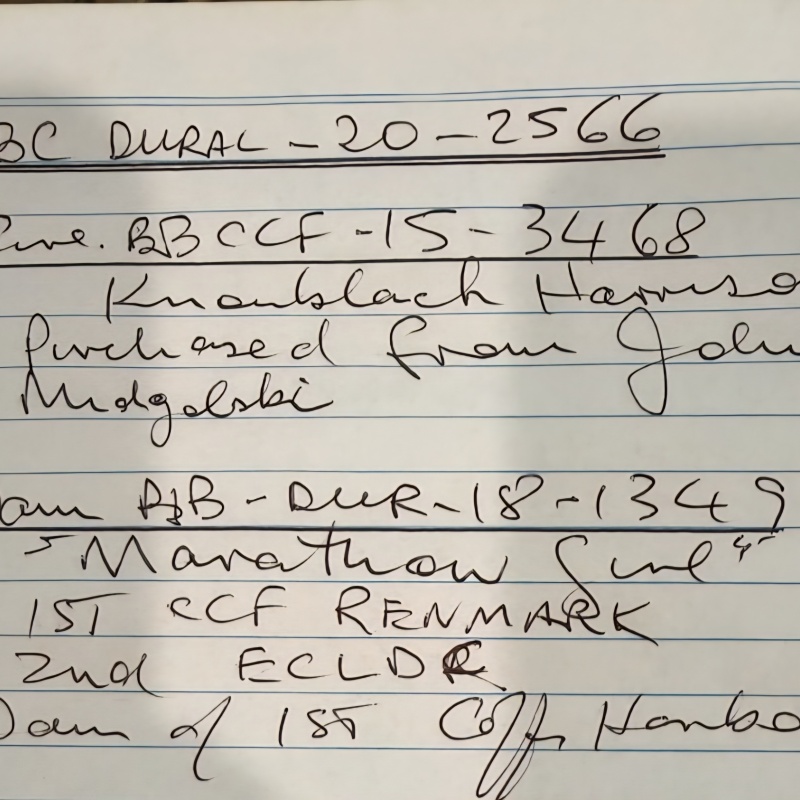 BC DURAL - 20 - 2566
Sire. BBCCF - 15 - 3468
Knoublach Harriso
Purchased from John
Midgolski
am BB - DUR - 18 - 1349
"Marathon Girl"
1ST CCF RENMARK
2nd ECLDR
Dam of 1ST Coffs Harbo